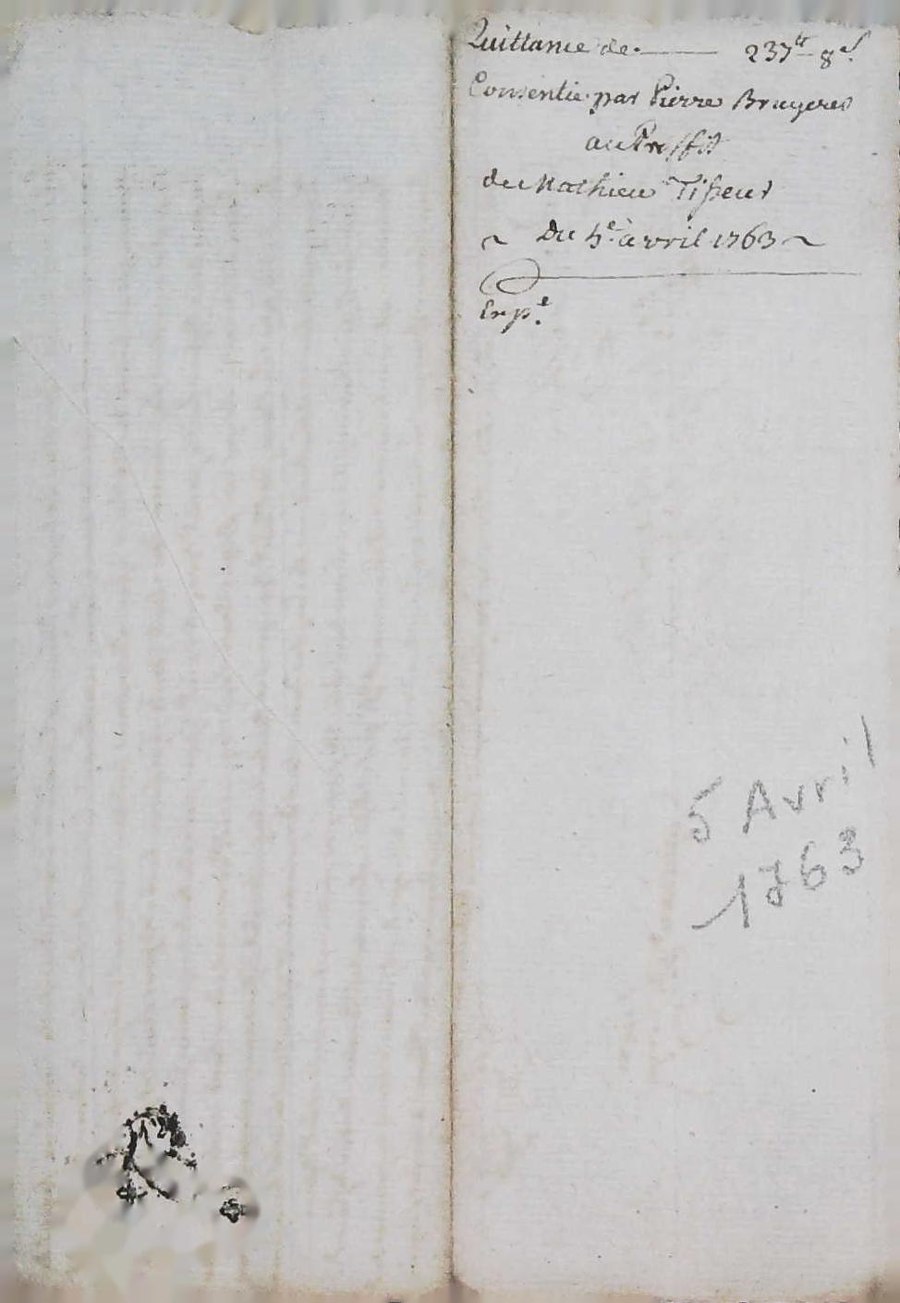 Quittance de 237ᵗᵗ 8ˢ.
Consentie par Pierre Bruyeres
au Proffit
de Mathieu Tisseur
Du 5ᵉ avril 1763
Expᵉ.
5 Avril
1763